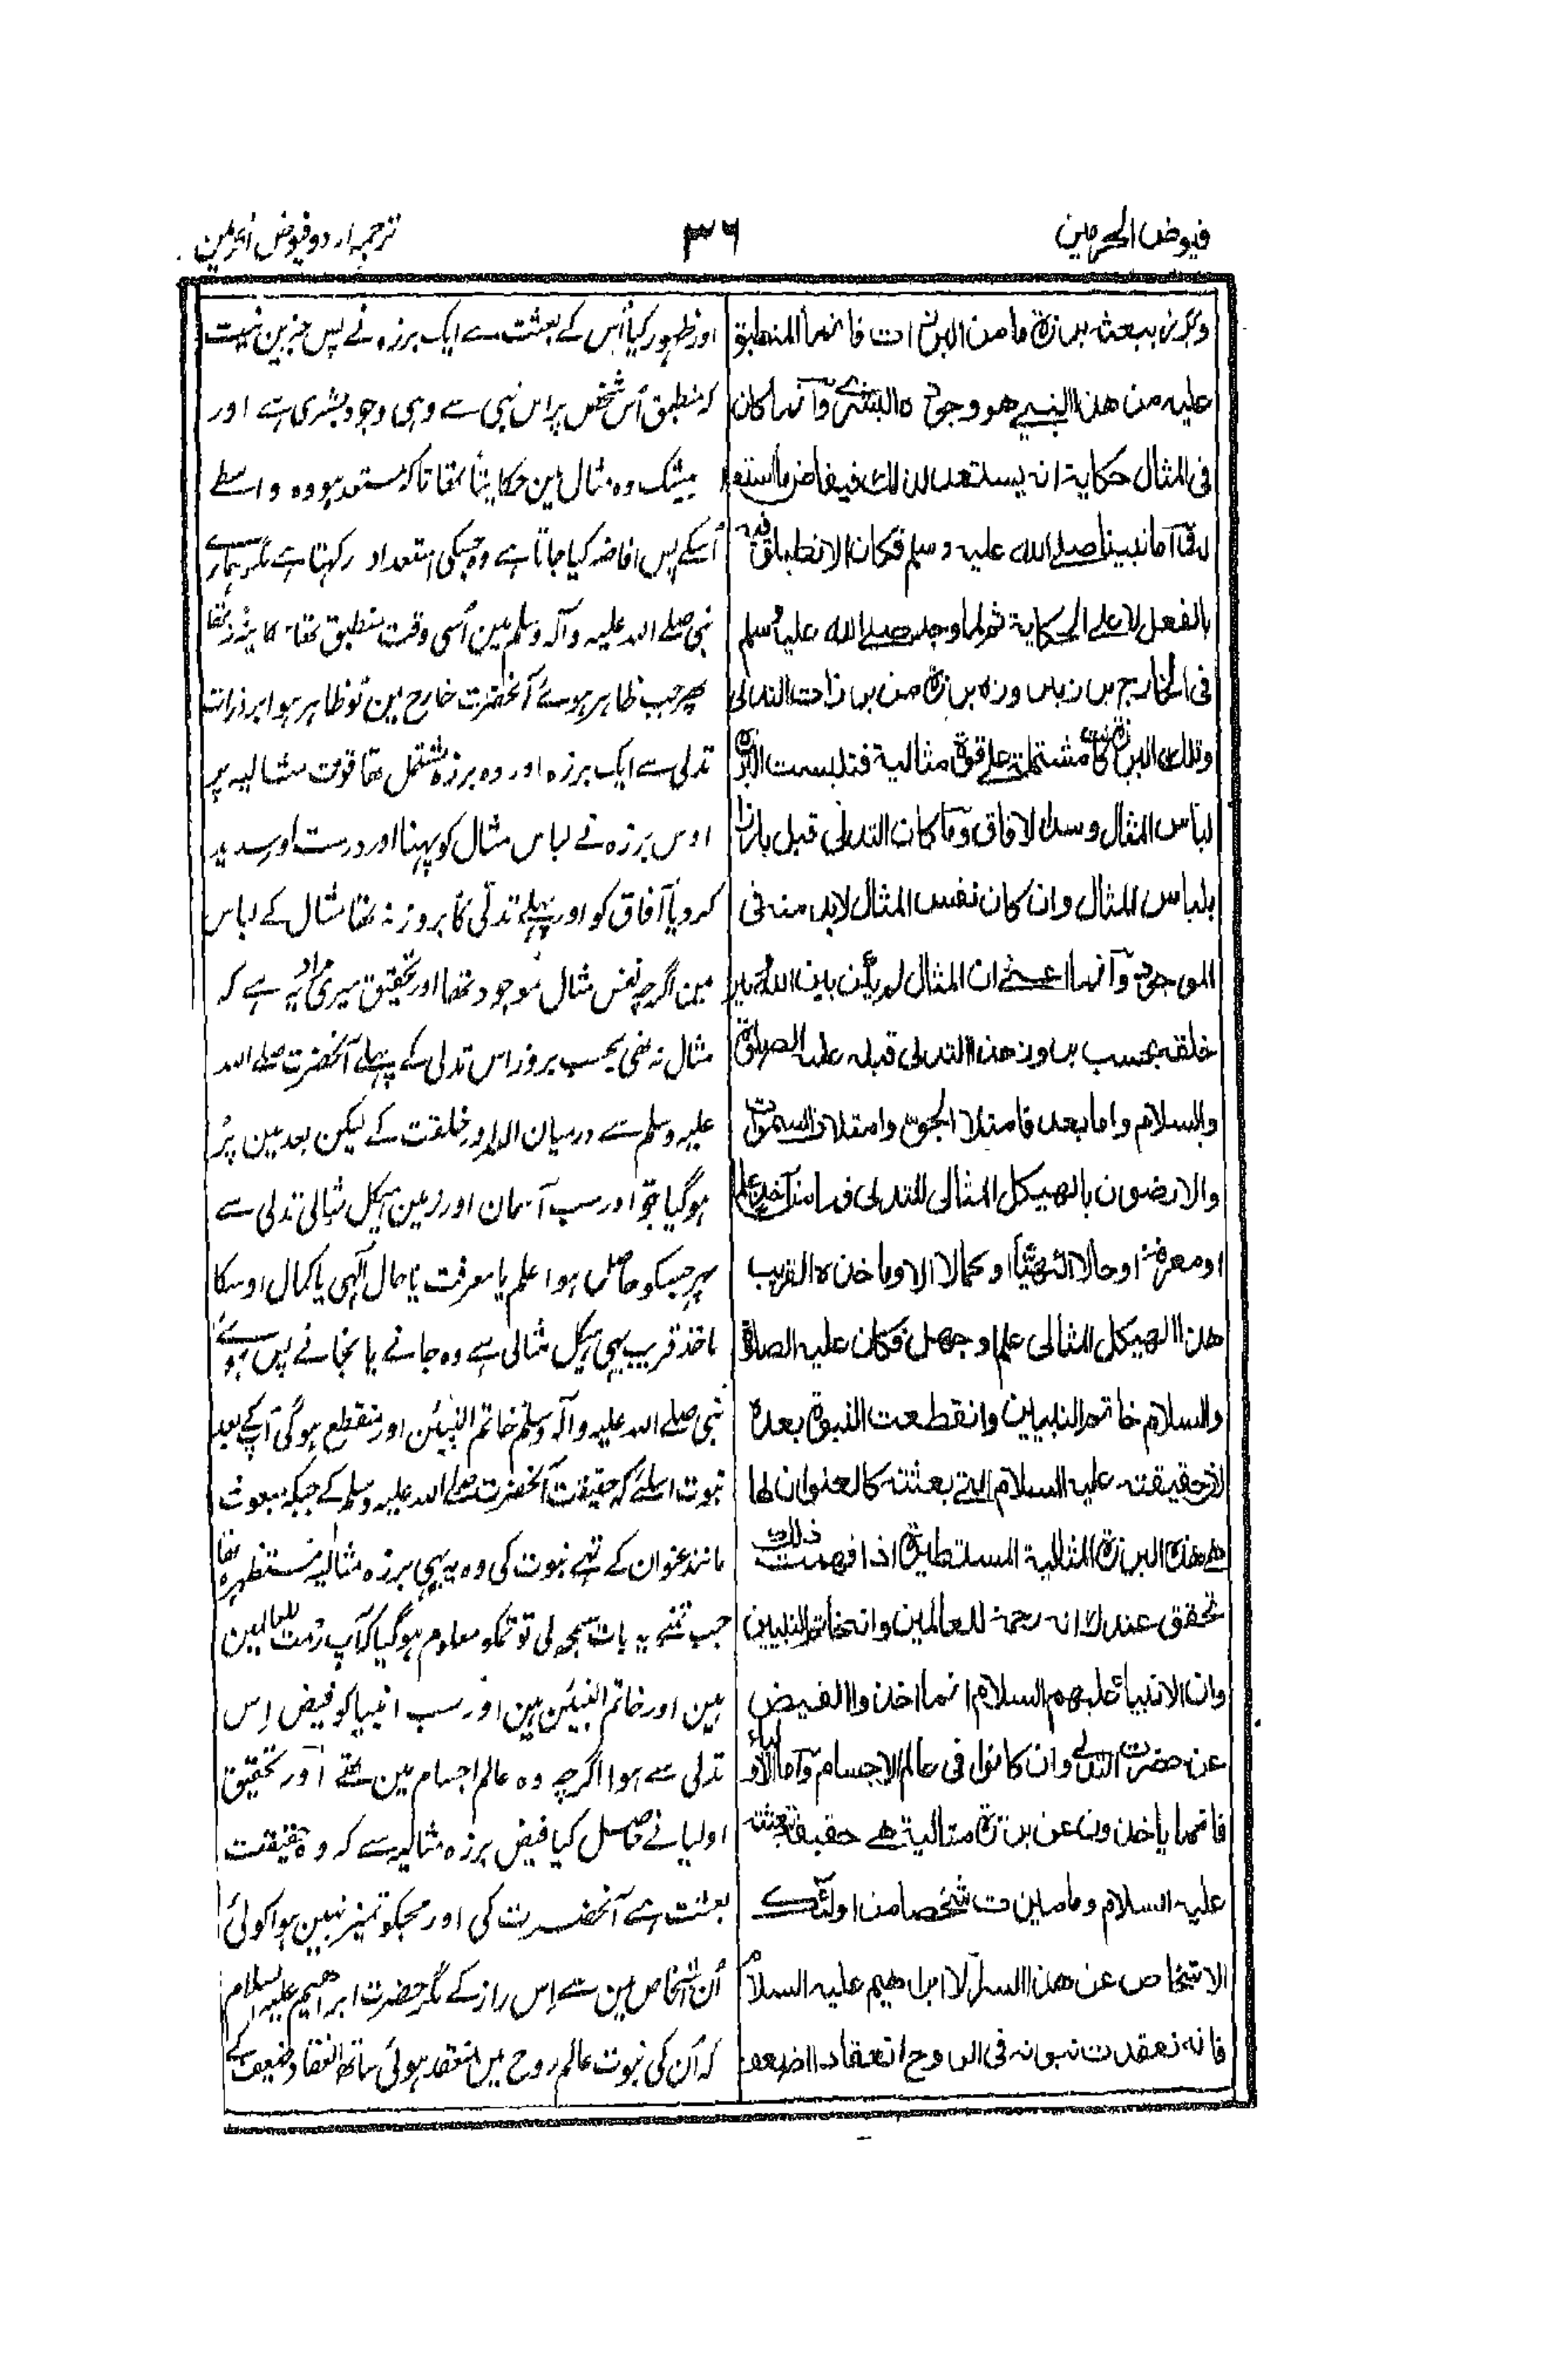 فیوض الحرمین
۳۶
ترجمہ اردو فیوض الحرمین
وبرز ببعثه برزة ما من البرزات فانما المنطبق
عليه من هذا النبي هو وجوده البشري وانما كان
في المثال حكاية انه يستعد لذلك فيفاض ما استعد
له واما نبينا صلے الله عليه وسلم فكان الانطباق فيه
بالفعل لا على الحكاية ثم لما وجد صلے الله عليه وسلم
في الخارج برز ببروزه برزة من برزات التدلي
وتلك البرزة كانت مشتملة على قوة مثالية فتلبست البرزة
لباس المثال وسد الافاق وما كان التدلي قبل بارزا
بلباس المثال وان كان نفس المثال لابد منه في
الموجود وانما اعني ان المثال لم يكن بين الله وبين
خلقه بحسب بروز هذا التدلي قبله عليه الصلوة
والسلام واما بعد فامتلا الجو وامتلات السموات
والارضون بالهيكل المثالي للتدلي فما من آخذ علما
او معرفة او حالا الٰهيا او كمالا الا وماخذه القريب
هذا الهيكل المثالي علم او جهل فكان عليه الصلوة
والسلام خاتم النبيين وانقطعت النبوة بعده
لان حقيقته عليه السلام التي بعثته كالعنوان لها
هي هذه البرزة المثالية المستطيرة اذا فهمت ذلك
تحقق عندك انه رحمة للعالمين وانه خاتم النبيين
وان الانبياء عليهم السلام انما اخذوا الفيض
عن حضرت التدلي وان كانوا في عالم الاجسام واما الاولياء
فانما ياخذون عن برزة مثالية هي حقيقة بعثته
عليه السلام وما ميزت شخصا من اولٰئك
الاشخاص عن هذا السر الا ابراهيم عليه السلام
فانه انعقدت نبوته في الروح انعقادا ضعيفا
اور ظہور کیا اُس کے بعثت سے ایک برزہ نے پس جزین نیست
کہ منطبق اُس شخص پر اس نبی سے وہی وجود بشری ہے اور
بیشک وہ مثال مین حکایتاً تھا تاکہ مستعد ہو وہ واسطے
اُسکے پس افاضہ کیا جاتا ہے وہ جسکی استعداد رکہتا ہے مگر ہمارے
نبی صلے اللہ علیہ وآلہ وسلم مین اُسی وقت منطبق تھا۔ حکایتہً نہ تھا
پھر جب ظاہر ہوئے آنحضرت خارج مین تو ظاہر ہوا برزات
تدلی سے ایک برزہ اور وہ برزہ مشتمل تھا قوت مثالیہ پر
اوس برزہ نے لباس مثال کو پہنا اور درست اور سدید
کردیا آفاق کو اور پہلے تدلّی کا بروز نہ تھا مثال کے لباس
مین اگرچہ نفس مثال موجود تھا اور تحقیق میری مراد یہ ہے کہ
مثال نہ تھی بحسب بروز اس تدلی کے پہلے آنحضرت صلے اللہ
علیہ وسلم سے درمیان اللہ اور خلقت کے لیکن بعد مین پُر
ہوگیا جوّ اور سب آسمان اور زمین ہیکل مثالی تدلی سے
پہر جسکو حاصل ہوا علم یا معرفت یا حال آلٰہی یا کمال اوسکا
ماخذ قریب یہی ہیکل مثالی ہے وہ جانے یا نجانے پس ہوئے
نبی صلے اللہ علیہ وآلہ وسلم خاتم النبیّن اور منقطع ہوگئی آپکے بعد
نبوت اسلئے کہ حقیقت آنحضرت صلے اللہ علیہ وسلم کے جبکہ مبعوث
مانند عنوان کے تہے نبوت کی وہ یہ یہی برزہ مثالیہ مستظہرہ تھا
جب تمنے یہ بات سمجہ لی تو تمکو معلوم ہوگیا کہ آپ رحمت للعالمین
ہین اور خاتم النبیّن ہین اور سب انبیا کو فیض اِس
تدلی سے ہوا اگرچہ وہ عالم اجسام مین تھے اور تحقیق
اولیا نے حاصل کیا فیض برزہ مثالیہ سے کہ وہ حقیقت
بعثت ہے آنحضرت کی اور مجکو تمیز نہین ہوا کوئی
اُن اشخاص مین سے اِس راز کے مگر حضرت ابراہیم علیہ السلام
کہ اُن کی نبوت عالم روح مین منعقد ہوئی ساتھ انعقاد ضعیف کے